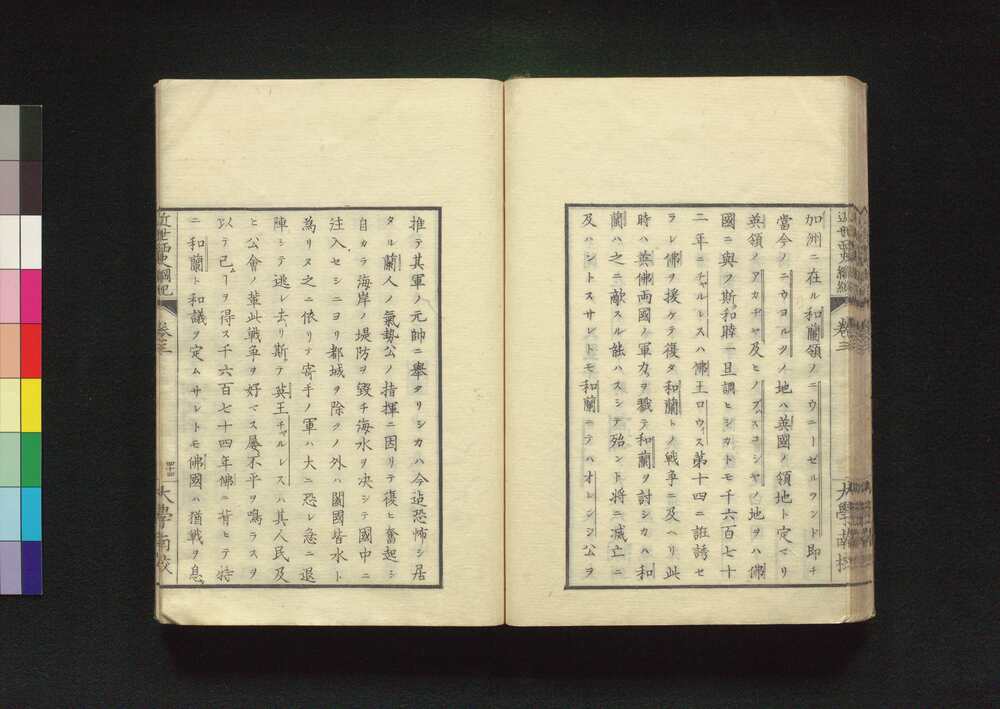 加洲ニ在ル和蘭領ノニウニーゼルランド即チ
當今ノニウヨルクノ地ハ英國ノ領地ト定マリ
英領ノアカヂヤ及ヒノヷスコシヤノ地ヲハ佛
國ニ與フ斯和睦一旦調ヒシカトモ千六百七十
二年ニチャルレスハ佛王ロウィス第十四ニ誑誘セ
ラレ佛ヲ援ケテ復タ和蘭トノ戦争ニ及ヘリ此
時ハ英佛両國ノ軍力ヲ戮テ和蘭ヲ討シカハ和
蘭ハ之ニ敵スル能ハスシテ殆ント将ニ滅亡ニ
及ハントスサレトモ和蘭ニテハオレンジ公ヲ
近世史綱紀 巻三
大學南校
推テ其軍ノ元帥ニ舉タリシカハ今迠恐怖シ居
タル蘭人ノ氣勢公ノ指揮ニ因リテ復ヒ奮起シ
自カラ海岸ノ堤防ヲ毀チ海水ヲ决シテ國中ニ
注入セシニヨリ都城ヲ除クノ外ハ闔國皆水ト
為リヌ之ニ依リテ寄手ノ軍ハ大ニ恐レ忽ニ退
陣シテ逃レ去リ斯テ英王チャルレスハ其人民及
ヒ公會ノ輩此戦争ヲ好マス屡不平ヲ鳴ラスヲ
以テ已ムヿヲ得ス千六百七十四年佛ニ背ヒテ特
ニ和蘭ト和議ヲ定ムサレトモ佛國ハ猶戦ヲ息
近世史綱紀 巻三
大學南校